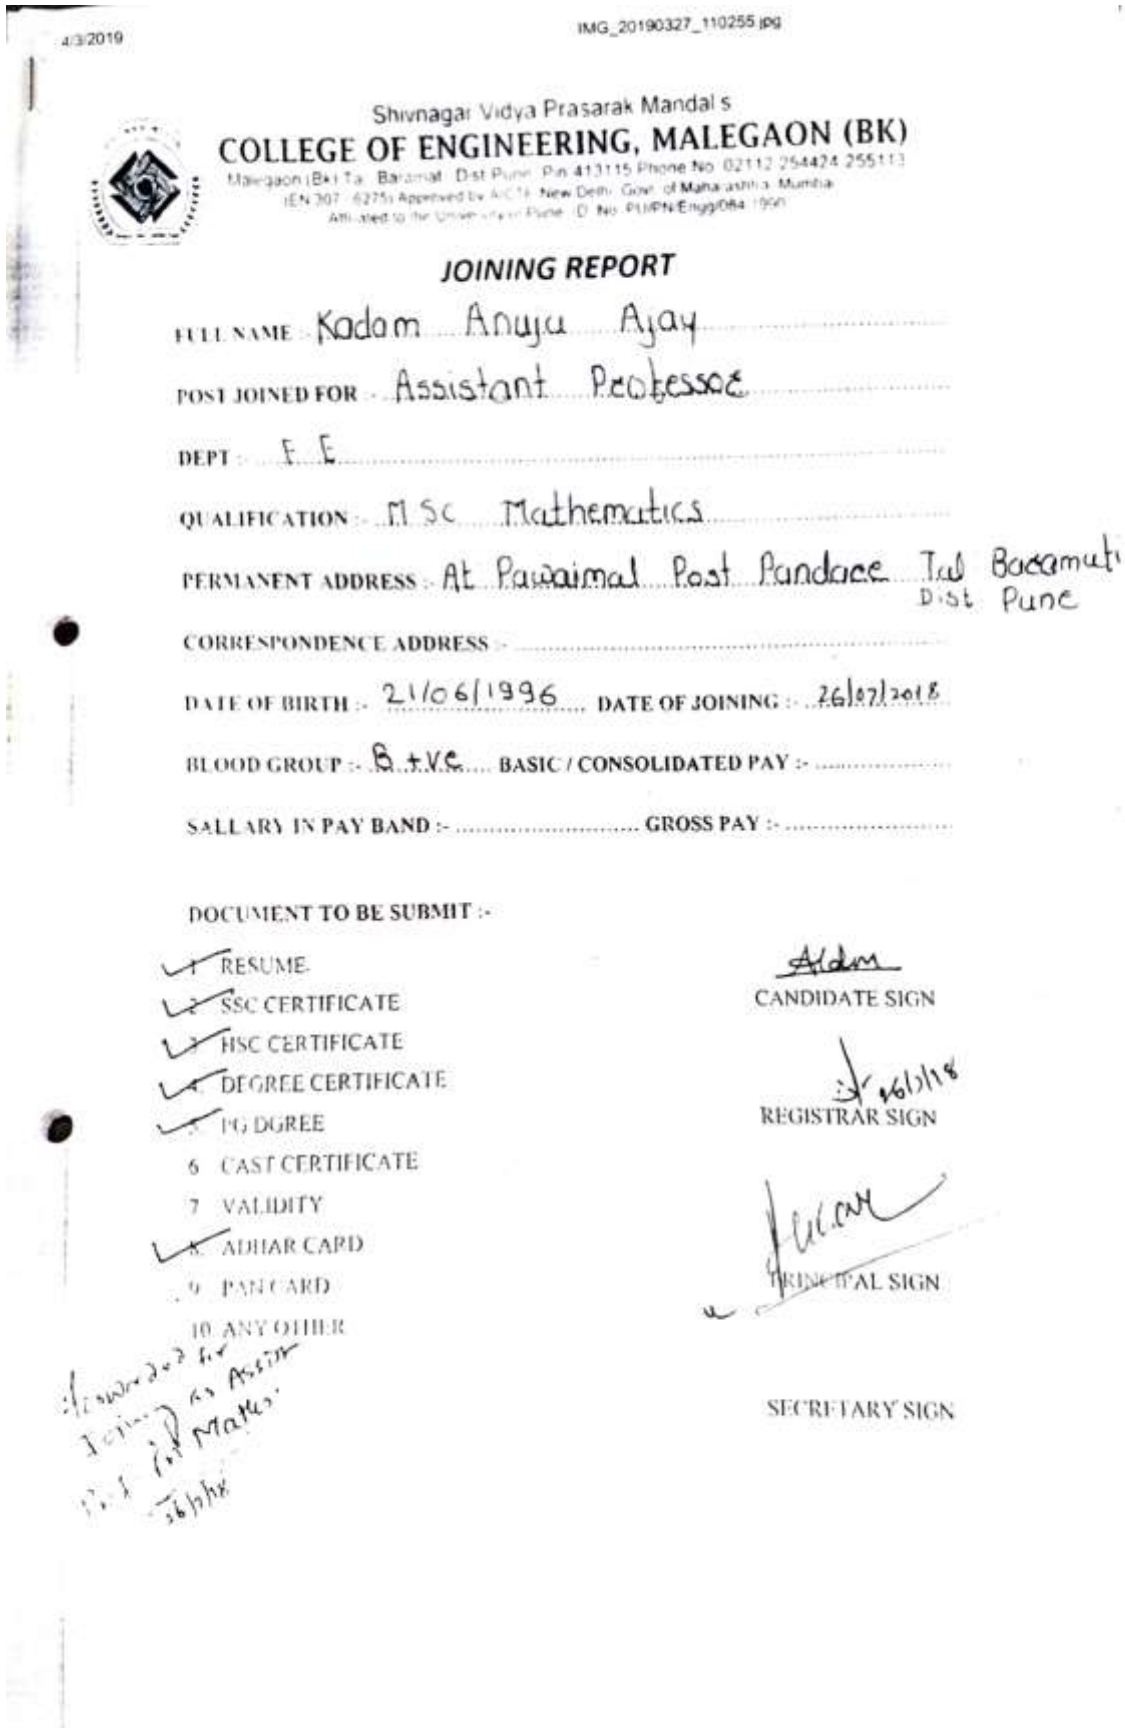 4/3/2019
IMG_20190327_110255.jpg
Shivnagar Vidya Prasarak Mandal's
COLLEGE OF ENGINEERING, MALEGAON (BK)
Malegaon (Bk) Ta. Baramati Dist Pune Pin 413115 Phone No. 02112 254424 255113
(EN 307 - 6275) Approved by AICTE New Delhi, Govt. of Maharashtra Mumbai
Affiliated to the University of Pune ID No. PU/PN/Engg/064 1990
JOINING REPORT
FULL NAME :- Kadam Anuja Ajay
POST JOINED FOR :- Assistant Professor
DEPT :- F E
QUALIFICATION :- MSc Mathematics
PERMANENT ADDRESS :- At Pawaimal Post Pandare Tal Baramati
Dist Pune
CORRESPONDENCE ADDRESS :-
DATE OF BIRTH :- 21/06/1996 DATE OF JOINING :- 26/07/2018
BLOOD GROUP :- B +ve BASIC / CONSOLIDATED PAY :-
SALLARY IN PAY BAND :- GROSS PAY :-
DOCUMENT TO BE SUBMIT :-
1 RESUME.
2 SSC CERTIFICATE
CANDIDATE SIGN
3 HSC CERTIFICATE
4. DEGREE CERTIFICATE
26/7/18
5 PG DGREE
REGISTRAR SIGN
6 CAST CERTIFICATE
7 VALIDITY
8. ADHAR CARD
9 PAN CARD
PRINCIPAL SIGN
10. ANY OTHER
Forwarded for
Joining as Assist
Prof for Maths.
26/7/18
SECRETARY SIGN